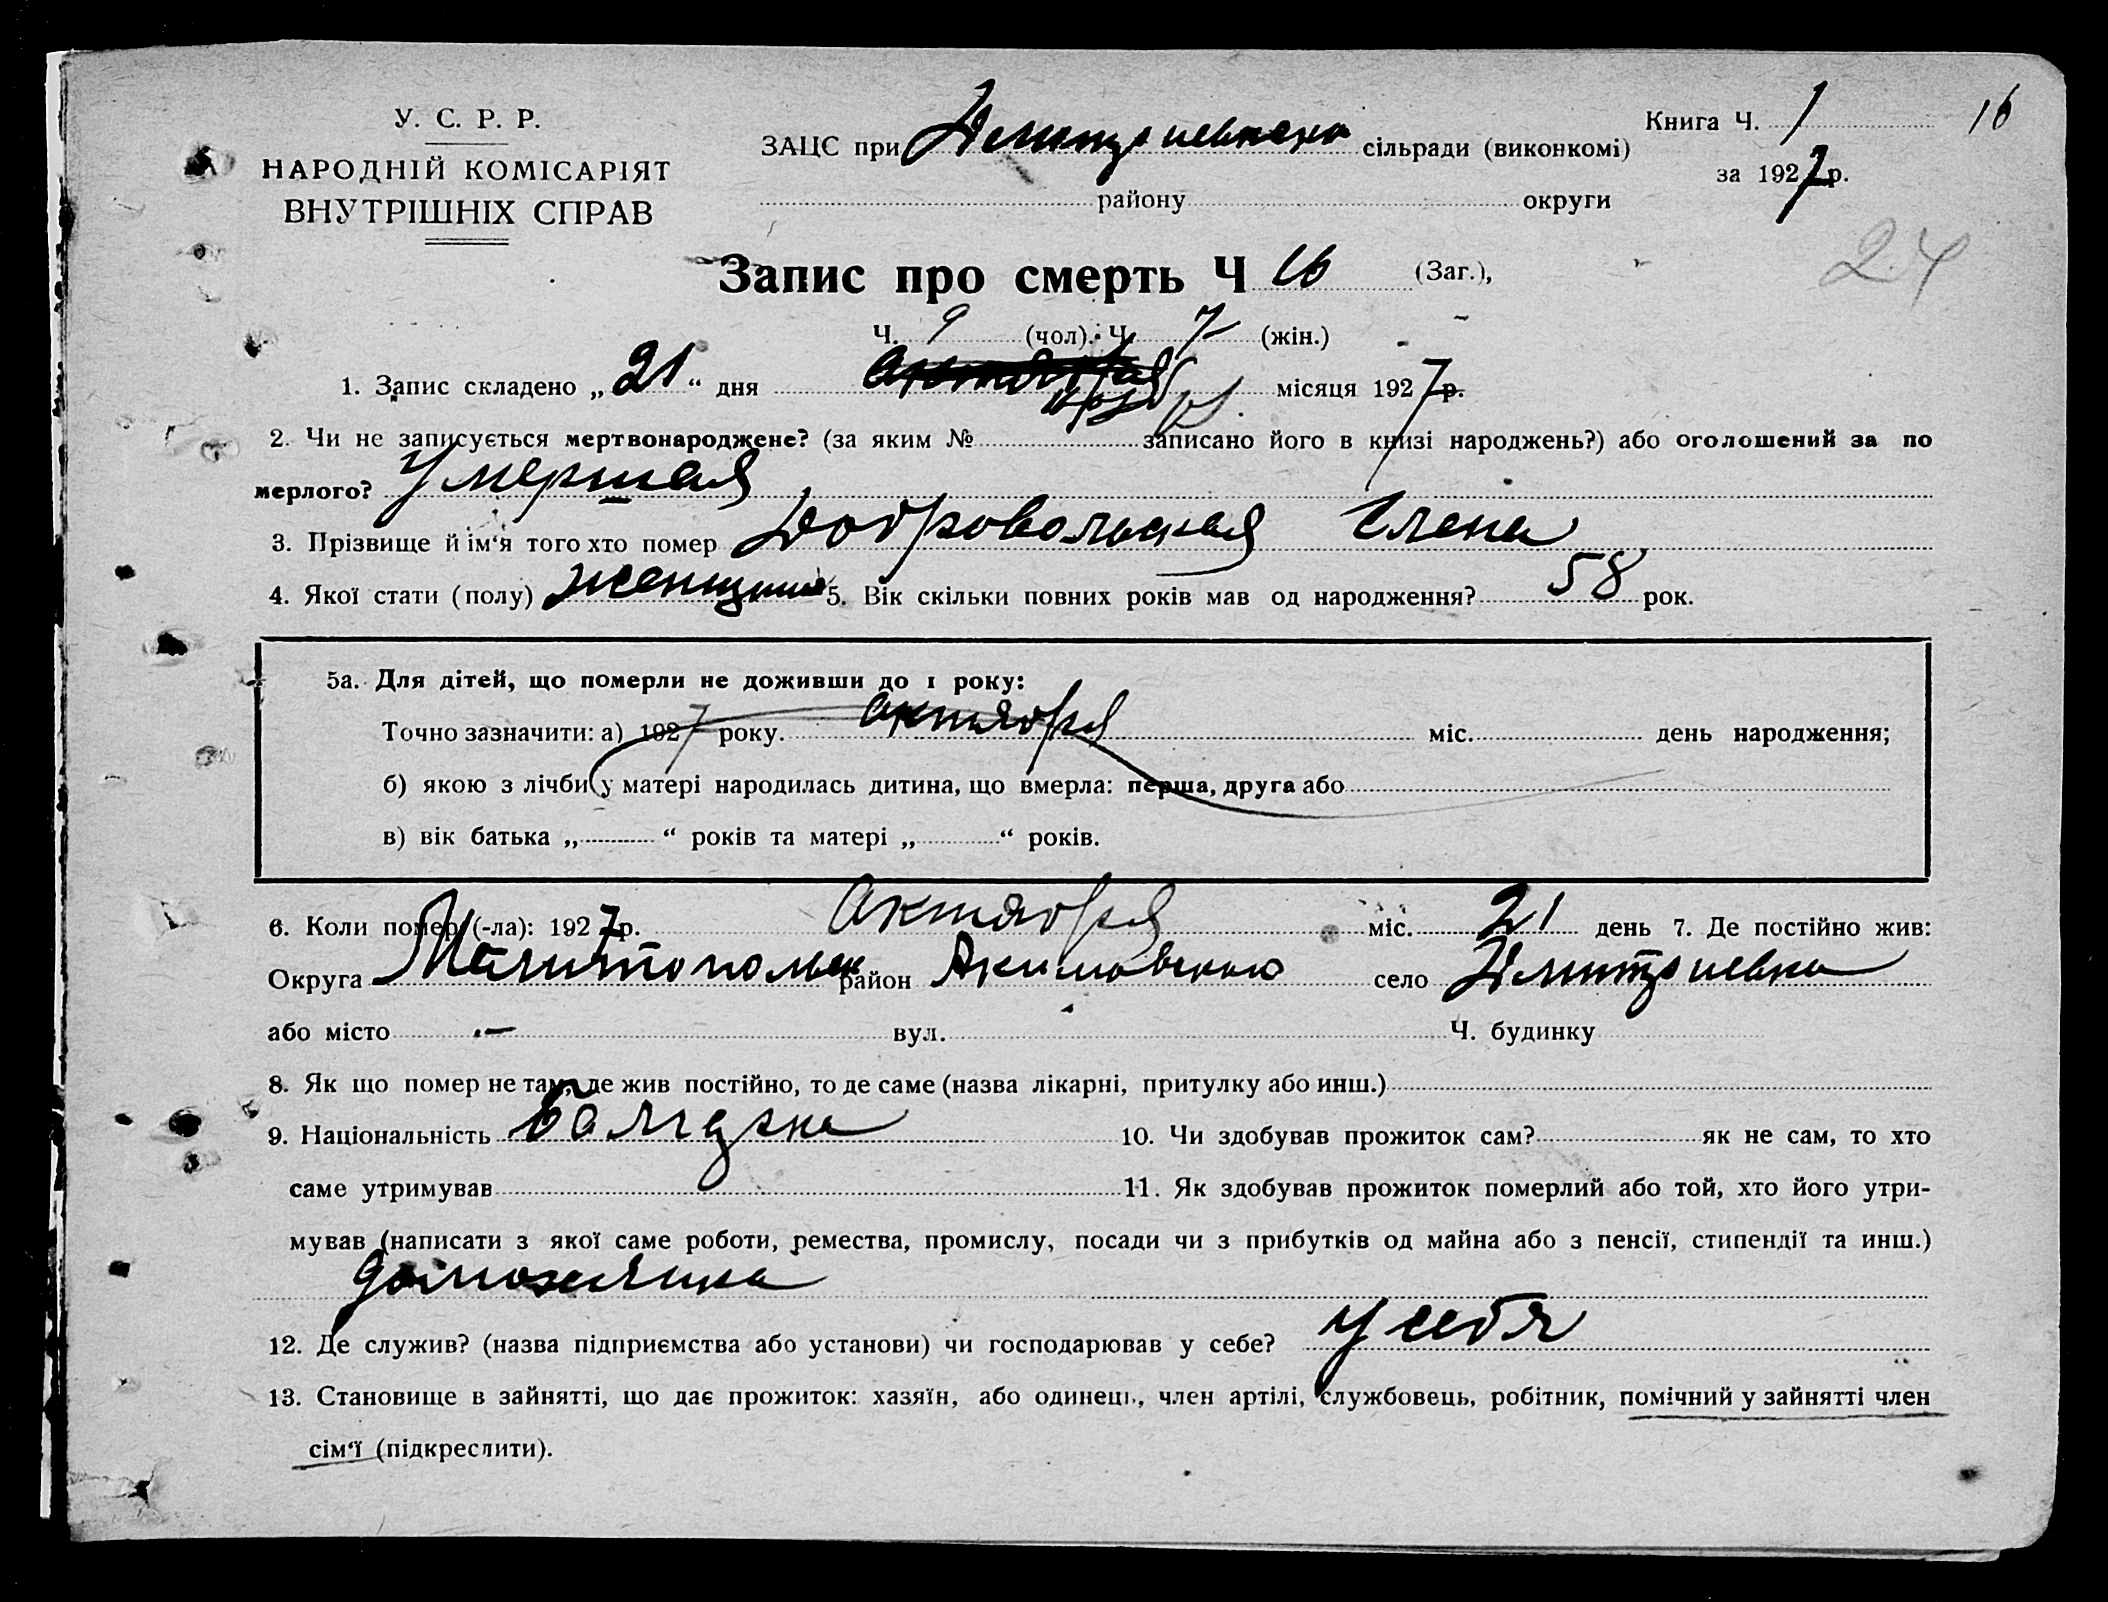 У. С. Р. Р.
НАРОДНІЙ КОМІСАРІЯТ
ВНУТРІШНІХ СПРАВ
ЗАЦС при сільради (виконкомі)
району округи
Книга Ч. 1 16
за 1927 р.
24
Запис про смерть Ч 16 (Заг.),
Ч. 9 (чол). Ч 7 (жін.)
1. Запис складено „21“ дня місяця 1927 р.
2. Чи не записується мертвонароджене? (за яким № записано його в книзі народжень?) або оголошений за по
мерлого? Умершая
3. Прізвище й ім‘я того хто помер Добровольская Елена
4. Якої стати (полу) женщина 5. Вік скільки повних років мав од народження? 58 рок.
5а. Для дітей, що померли не доживши до 1 року:
Точно зазначити: а) 1927 року. Октября міс. день народження;
б) якою з лічби у матері народилась дитина, що вмерла: перша, друга або
в) вік батька „ “ років та матері „ “ років.
6. Коли помер (-ла): 1927 р. Октября міс. 21 день 7. Де постійно жив:
Округа район село Дмитриевка
або місто — вул. Ч. будинку
8. Як що помер не там, де жив постійно, то де саме (назва лікарні, притулку або инш.)
9. Національність 10. Чи здобував прожиток сам? як не сам, то хто
саме утримував 11. Як здобував прожиток померлий або той, хто його утри-
мував (написати з якої саме роботи, ремества, промислу, посади чи з прибутків од майна або з пенсії, стипендії та инш.)
12. Де служив? (назва підприємства або установи) чи господарював у себе? у себя
13. Становище в зайнятті, що дає прожиток: хазяїн, або одинець, член артілі, службовець, робітник, помічний у зайнятті член
сім‘ї (підкреслити).